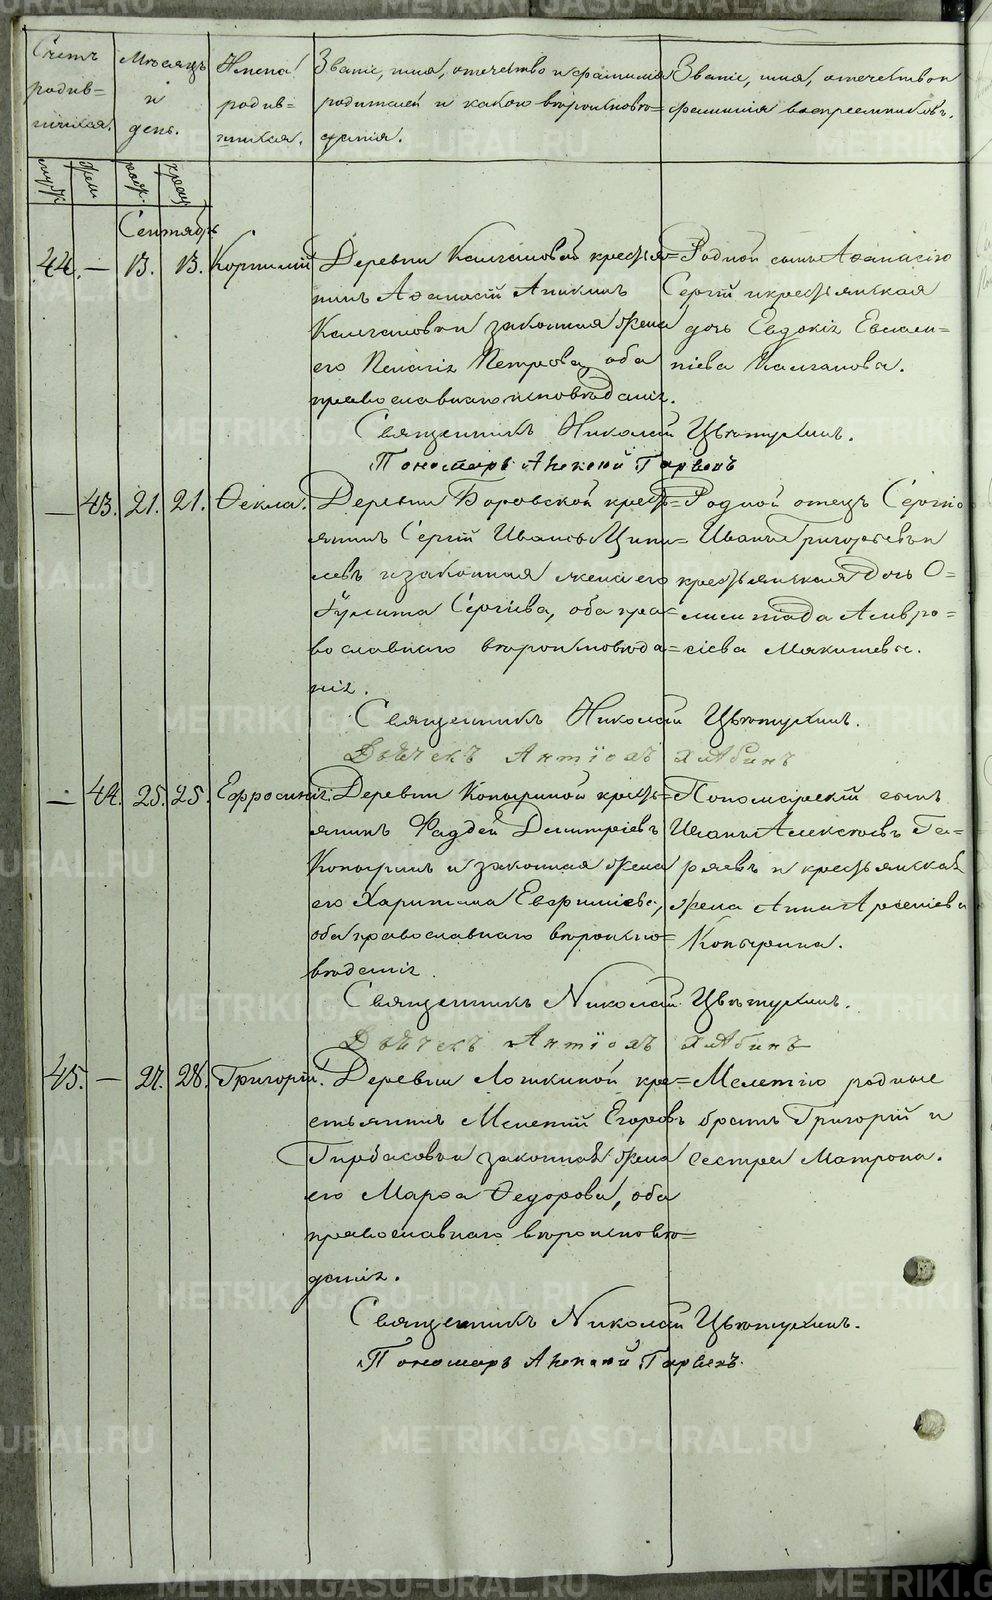 Счетъ
родив-
шихся.
Мѣсяцъ
и
день.
Имена
родив-
шихся.
Званіе, имя, отечество и фамилія
родителей и какого вѣроисповѣ-
данія.
Званіе, имя, отечество и
фамилія воспреемниковъ.
муж.
жен.
рожд.
крещ.
Сентябрь
44. — 13. 13. Корнилій
Деревни Калгановой крестья-
нинъ Афанасій Аникинъ
Калгановъ и законная жена
его Пелагія Петрова, оба
православнаго исповѣданія.
Родной сынъ Афанасію
Сергій и крестьянская
дочь Евдокія Евлам-
піева Калганова.
Священникъ Николай Цвѣтухинъ.
Пономарь Алексій Гаряевъ
— 43. 21. 21. Ѳекла.
Деревни Боровской кресть-
янинъ Сергій Ивановъ Ципи-
левъ и законная жена его
Гулита Сергіева, оба пра-
вославнаго вѣроисповѣда-
нія.
Родной отецъ Сергію
Иванъ Григорьевъ и
крестьянская дочь О-
лимпіада Амвро-
сіева Мякишева.
Священникъ Николай Цвѣтухинъ.
Дьячекъ Антіохъ Хлябинъ
— 44. 25. 25. Ефросинія.
Деревни Копыриной кресть-
янинъ Фаддей Димитріевъ
Копыринъ и законная жена
его Харитина Евфиміева,
оба православнаго вѣроиспо-
вѣданія.
Пономарскій сынъ
Иванъ Алексѣевъ Га-
ряевъ и крестьянская
жена Анна Арсеніева
Копырина.
Священникъ Николай Цвѣтухинъ.
Дьячекъ Антіохъ Хлябинъ
45. — 27. 28. Григорій.
Деревни Лошкиной кре-
стьянинъ Мелетій Егоровъ
Гирбасовъ и законная жена
его Марфа Ѳедорова, оба
православнаго вѣроисповѣ-
данія.
Мелетію родные
братъ Григорій и
сестра Матрона.
Священникъ Николай Цвѣтухинъ.
Пономарь Алексій Гаряевъ.
METRIKI.GASO-URAL.RU